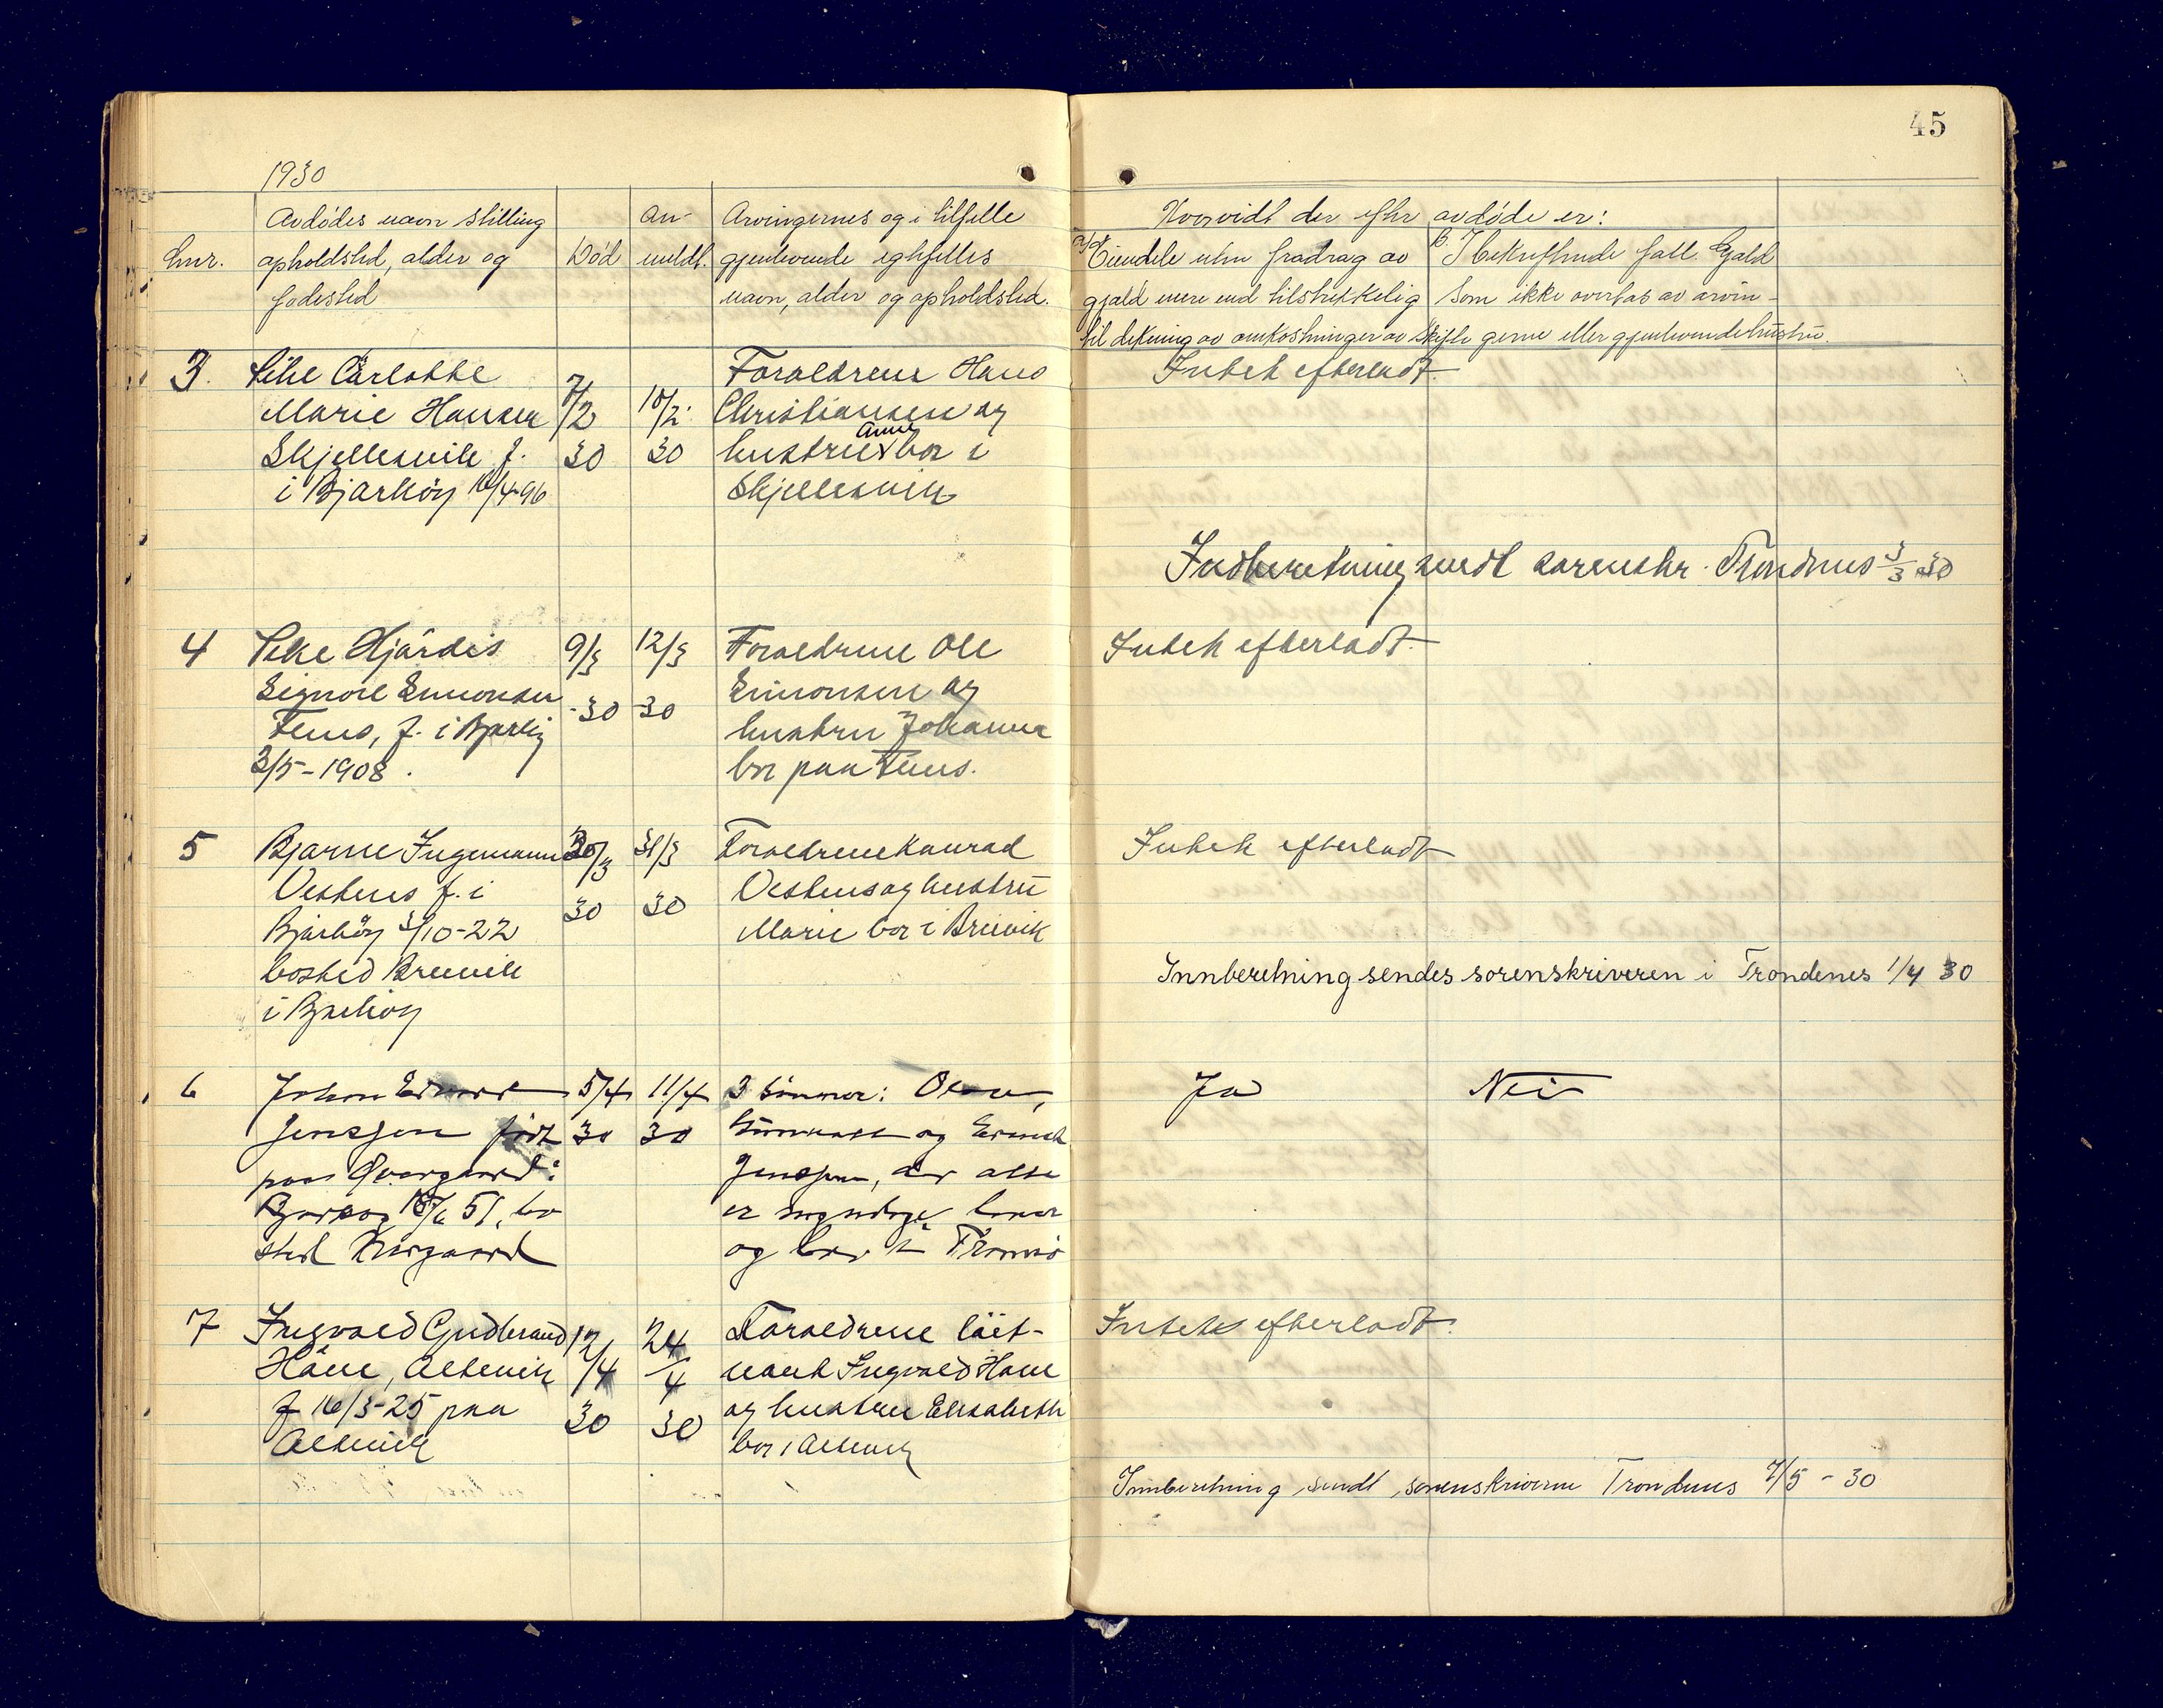 45
1930
Lnr.
Avdødes navn stilling
opholdsted, alder og
fødested
Død
An-
meldt.
Arvingernes og i tilfelle
gjenlevende egtefelles
navn, alder og opholdsted.
Hvorvidt der efter avdøde er:
Eiendele uten fradrag av
gjæld mere end tilstrekkelig
til dekning av omkostninger av skifte
B. I bekreftende fall. Gjæld
som ikke overtas av arvin-
gerne eller gjenlevende hustru.
3.
Carlotte
Marie Hansen
Skjellesvik f.
i Bjarkøy 10/4-96
7/2
30
10/2
30
Foraldrene Hans
Christiansen og
hustru Anne bor i
Skjellesvik
Intet efterladt.
Indberetning sendt sorenskr. Trondenes 3/3 30
4
Hjørdis
Signore Simonsen
f. i Bjarkøy
3/5-1908.
9/3
-30
12/3
-30
Foraldrene Ole
Simonsen og
hustru Johanna
bor paa
Intet efterladt.
5
Bjarne Ingemann
f. i
Bjarkøy 3/10-22
bosted Breivik
i Bjarkøy
30/3
30
31/3
30
Foraldrene Konrad
og hustru
Marie bor i Breivik
Intet efterladt
Innberetning sendes sorenskriveren i Trondenes 1/4 30
6
Johan Edvard
Jenssen født
paa i
Bjarkøy 51, bo
sted
5/4
30
11/4
30
3 sønner:
og
Jenssen, der alle
er myndige
og bor i Tromsø
Ja
Nei
7
Ingvald Gudbrand
Håne, Altevik
f 16/3-25 paa
Altevik
12/4
30
24/4
30
Foraldrene løit-
nant Ingvald Hane
og hustru Elisabeth
bor i Altevik
Intet efterladt.
Innberetning sendt sorenskriveren Trondenes 7/5 - 30